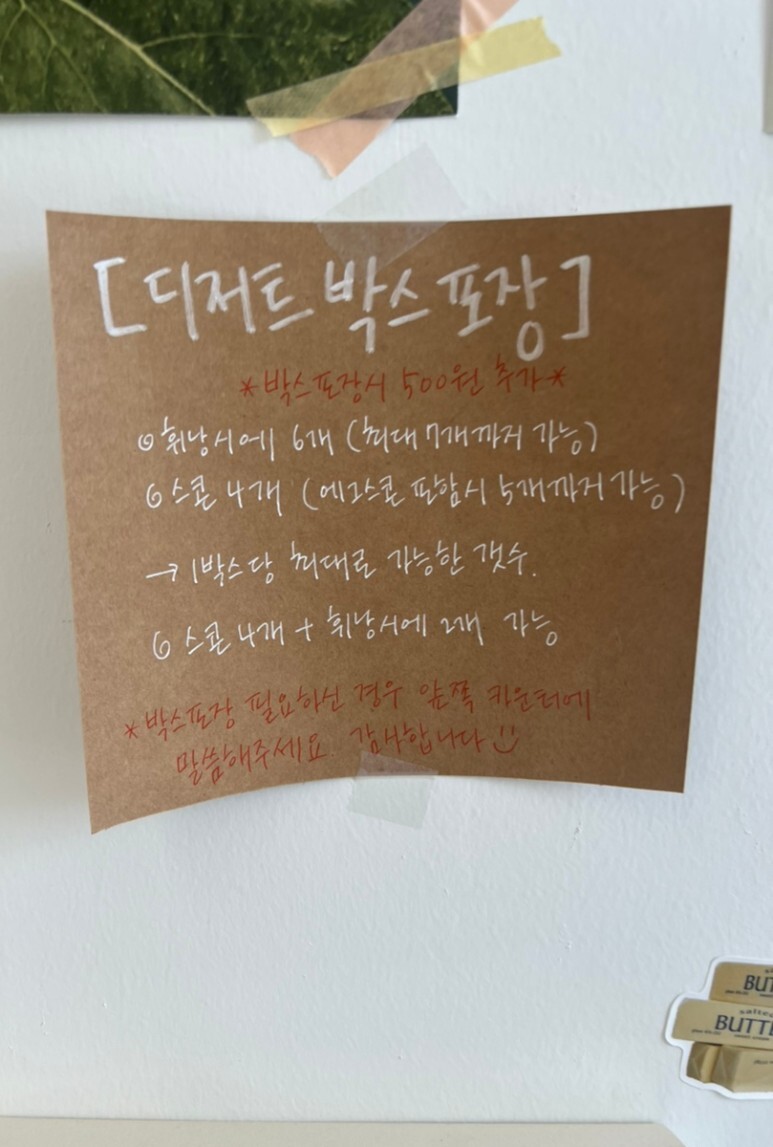 [디저트 박스 포장]
*박스포장시 500원 추가*
휘낭시에 6개 (최대 7개까지 가능)
스콘 4개 (에그스콘 포함시 5개까지 가능)
→ 1박스당 최대로 가능한 갯수.
스콘 4개 + 휘낭시에 2개 가능
*박스포장 필요하신 경우 앞쪽 카운터에
말씀해주세요. 감사합니다
BUT
salted
BUTTE